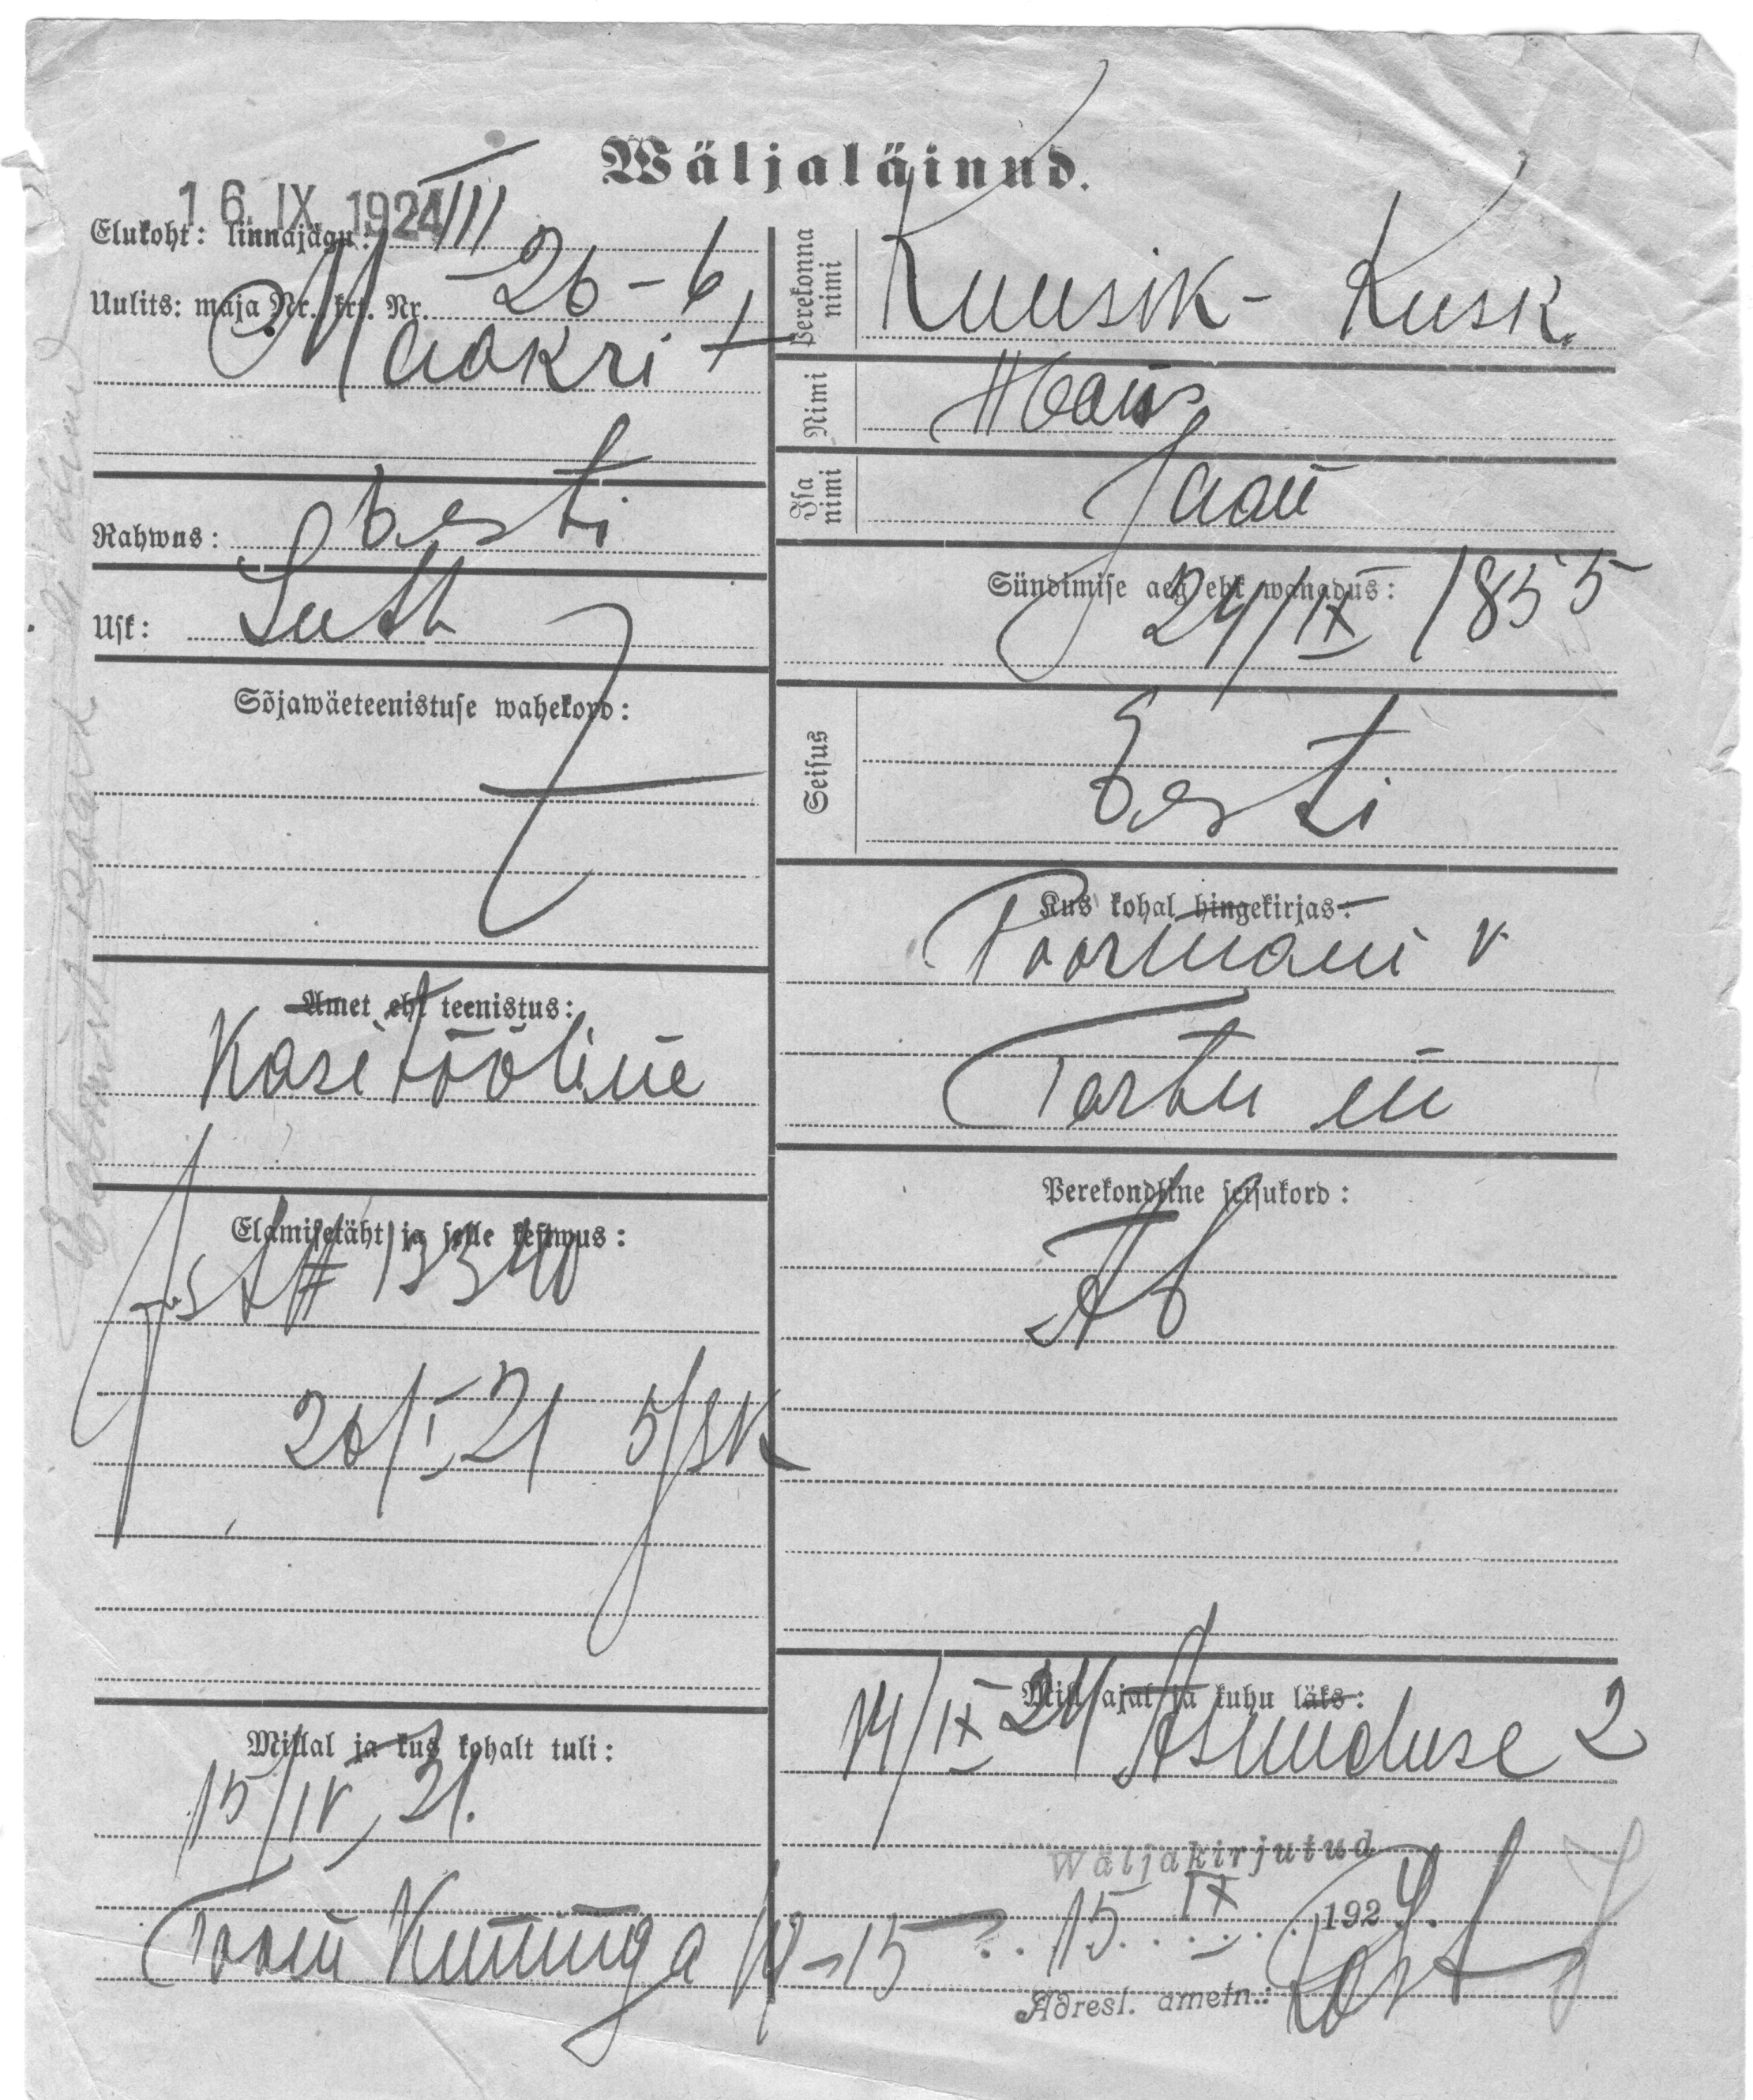 Wäljaläinud.
16. IX 1924
Elukoht: linnajagu: III
Uulits: maja Nr. krt. Nr. 26 - 6
Maakri
Rahwus: Eesti
Usk: Luth
Sõjawäeteenistuse wahekord:
Amet eht teenistus:
Käsitööline
Elamisetäht ja selle kestwus:
13340
26/I 21
Millal ja kus kohalt tuli:
15/IV 21.
Toom Kuninga 19-15
Perekonna nimi
Kuusik - Kusk.
Nimi
Hans
Isa nimi
Jaan
Sündimise aeg eht wanadus:
24/IX 1855
Seisus
Eesti
Kus kohal hingekirjas:
Poormani v
Tartu m
Perekondline seisukord:
Ab
Mill ajal ja kuhu läks:
14/IX 24 Asunduse 2
Wäljakirjutud
15. IX 1924.
Adresl. ametn.: